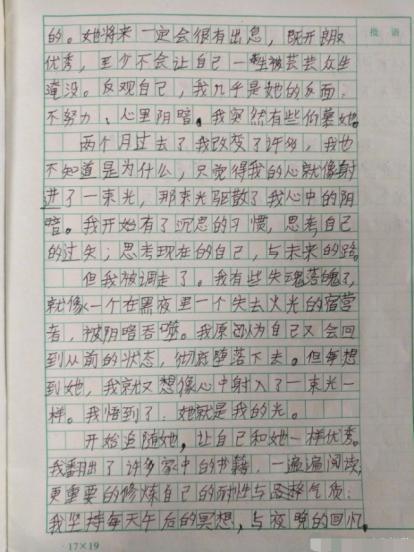 批语
的。她将来一定会很有出息，既开朗又
优秀，至少不会让自己一生被芸芸众生
淹没。反观自己，我几乎是她的反面，
不努力、心里阴暗。我突然有些怕暮她。
两个月过去了我改变了许多，我也
不知道是为什么，只觉得我的心就像射
进了一束光，那束光驱散了我心中的阴
暗。我开始有了沉思的习惯，思考自己
的过失；思考现在的自己，与未来的路。
但我被调走了。我有些失魂落魄了，
就像一个在黑夜里一个失去火光的宿营
者，被阴暗吞噬。我原以为自己又会回
到从前的状态，彻底堕落下去。但每想
到她，我就又想像心中射入了一束光一
样。我悟到了，她就是我的光。
开始追随她，让自己和她一样优秀。
我翻出了许多家中的书籍，一遍遍阅读，
更重要的修炼自己的耐性与气质。
我坚持每天午后的冥想，与夜晚的回忆，
17×19